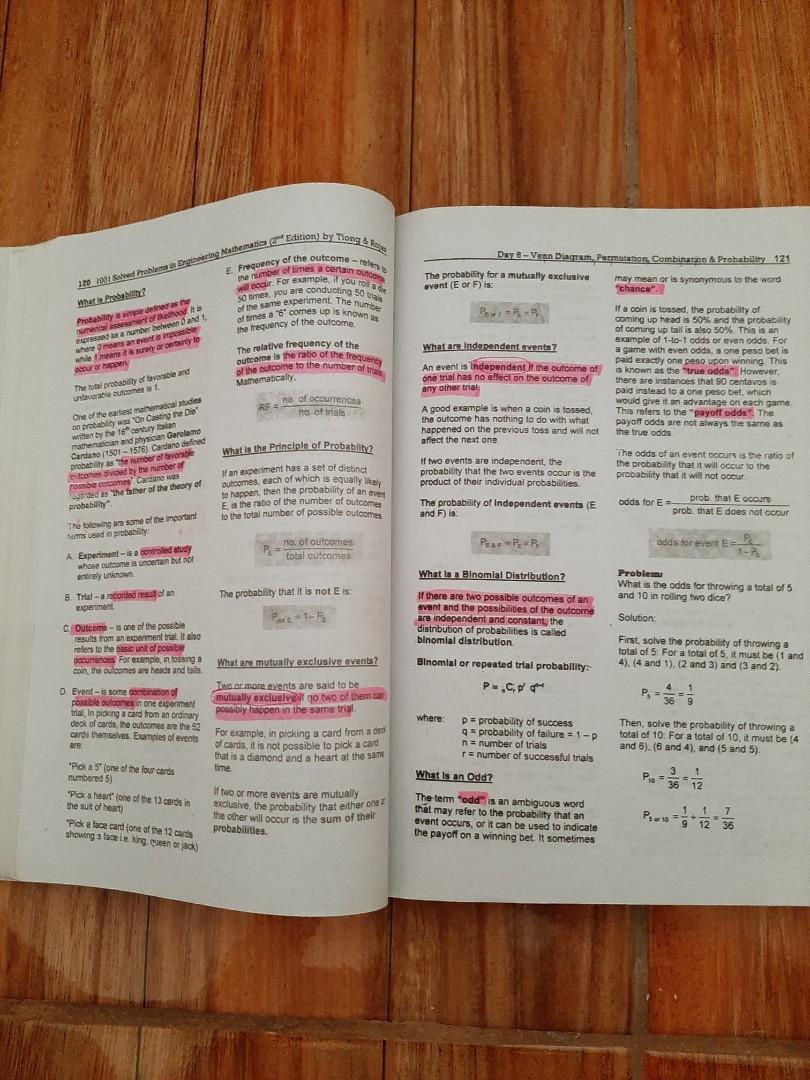 120 1001 Solved Problems in Engineering Mathematics (2nd Edition) by Tiong & Rojas
What is Probability?
Probability is simple defined as the
numerical assessment of likelihood. It is
expressed as a number between 0 and 1,
where 0 means an event is impossible
while 1 means it is surely or certainly to
occur or happen.
The total probability of favorable and
unfavorable outcomes is 1.
One of the earliest mathematical studies
on probability was "On Casting the Die"
written by the 16th century Italian
mathematician and physician Gerolamo
Cardano (1501 – 1576). Cardano defined
probability as "the number of favorable
outcomes divided by the number of
possible outcomes". Cardano was
regarded as "the father of the theory of
probability".
The following are some of the important
terms used in probability:
A. Experiment – is a controlled study
whose outcome is uncertain but not
entirely unknown.
B. Trial – a recorded result of an
experiment.
C. Outcome – is one of the possible
results from an experiment trial. It also
refers to the basic unit of possible
occurrences. For example, in tossing a
coin, the outcomes are heads and tails.
D. Event – is some combination of
possible outcomes in one experiment
trial. In picking a card from an ordinary
deck of cards, the outcomes are the 52
cards themselves. Examples of events
are:
"Pick a 5" (one of the four cards
numbered 5)
"Pick a heart" (one of the 13 cards in
the suit of heart)
"Pick a face card (one of the 12 cards
showing a face i.e. king, queen or jack)
E. Frequency of the outcome – refers to
the number of times a certain outcome
will occur. For example, if you roll a die
50 times, you are conducting 50 trials
of the same experiment. The number
of times a "6" comes up is known as
the frequency of the outcome.
The relative frequency of the
outcome is the ratio of the frequency
of the outcome to the number of trials.
Mathematically,
RF = no. of occurrences / no. of trials
What is the Principle of Probability?
If an experiment has a set of distinct
outcomes, each of which is equally likely
to happen, then the probability of an event
E, is the ratio of the number of outcomes
to the total number of possible outcomes.
PE = no. of outcomes / total outcomes
The probability that it is not E is:
Pnot E = 1 – PE
What are mutually exclusive events?
Two or more events are said to be
mutually exclusive if no two of them can
possibly happen in the same trial.
For example, in picking a card from a deck
of cards, it is not possible to pick a card
that is a diamond and a heart at the same
time.
If two or more events are mutually
exclusive, the probability that either one or
the other will occur is the sum of their
probabilities.
Day 8 – Venn Diagram, Permutation, Combination & Probability 121
The probability for a mutually exclusive
event (E or F) is:
What are Independent events?
An event is independent if the outcome of
one trial has no effect on the outcome of
any other trial.
A good example is when a coin is tossed,
the outcome has nothing to do with what
happened on the previous toss and will not
affect the next one.
If two events are independent, the
probability that the two events occur is the
product of their individual probabilities.
The probability of Independent events (E
and F) is:
PE & F = PE x PF
What is a Binomial Distribution?
If there are two possible outcomes of an
event and the possibilities of the outcome
are independent and constant, the
distribution of probabilities is called
binomial distribution.
Binomial or repeated trial probability:
P = nCr p^r q^n-r
where: p = probability of success
q = probability of failure = 1 – p
n = number of trials
r = number of successful trials
What is an Odd?
The term "odd" is an ambiguous word
that may refer to the probability that an
event occurs, or it can be used to indicate
the payoff on a winning bet. It sometimes
may mean or is synonymous to the word
"chance".
If a coin is tossed, the probability of
coming up head is 50% and the probability
of coming up tail is also 50%. This is an
example of 1-to-1 odds or even odds. For
a game with even odds, a one peso bet is
paid exactly one peso upon winning. This
is known as the "true odds". However,
there are instances that 90 centavos is
paid instead to a one peso bet, which
would give it an advantage on each game.
This refers to the "payoff odds". The
payoff odds are not always the same as
the true odds.
The odds of an event occurs is the ratio of
the probability that it will occur to the
probability that it will not occur.
odds for E = prob. that E occurs / prob. that E does not occur
odds for event E = PE / 1–PE
Problem:
What is the odds for throwing a total of 5
and 10 in rolling two dice?
Solution:
First, solve the probability of throwing a
total of 5: For a total of 5, it must be (1 and
4), (4 and 1), (2 and 3) and (3 and 2).
P5 = 4/36 = 1/9
Then, solve the probability of throwing a
total of 10: For a total of 10, it must be (4
and 6), (6 and 4), and (5 and 5).
P10 = 3/36 = 1/12
P5 or 10 = 1/9 + 1/12 = 7/36